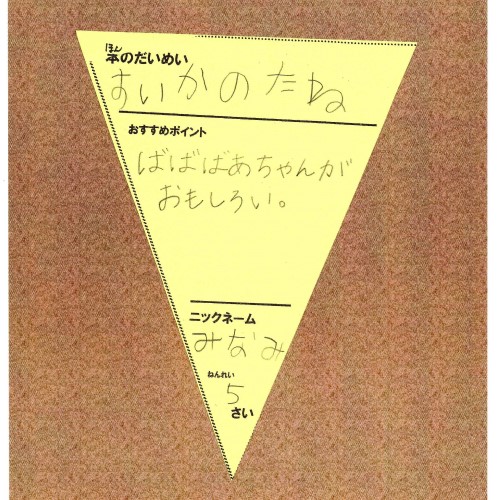 ほん
本のだいめい
すいかのたね
おすすめポイント
ばばばあちゃんが
おもしろい。
ニックネーム
みなみ
ねんれい
5
さい